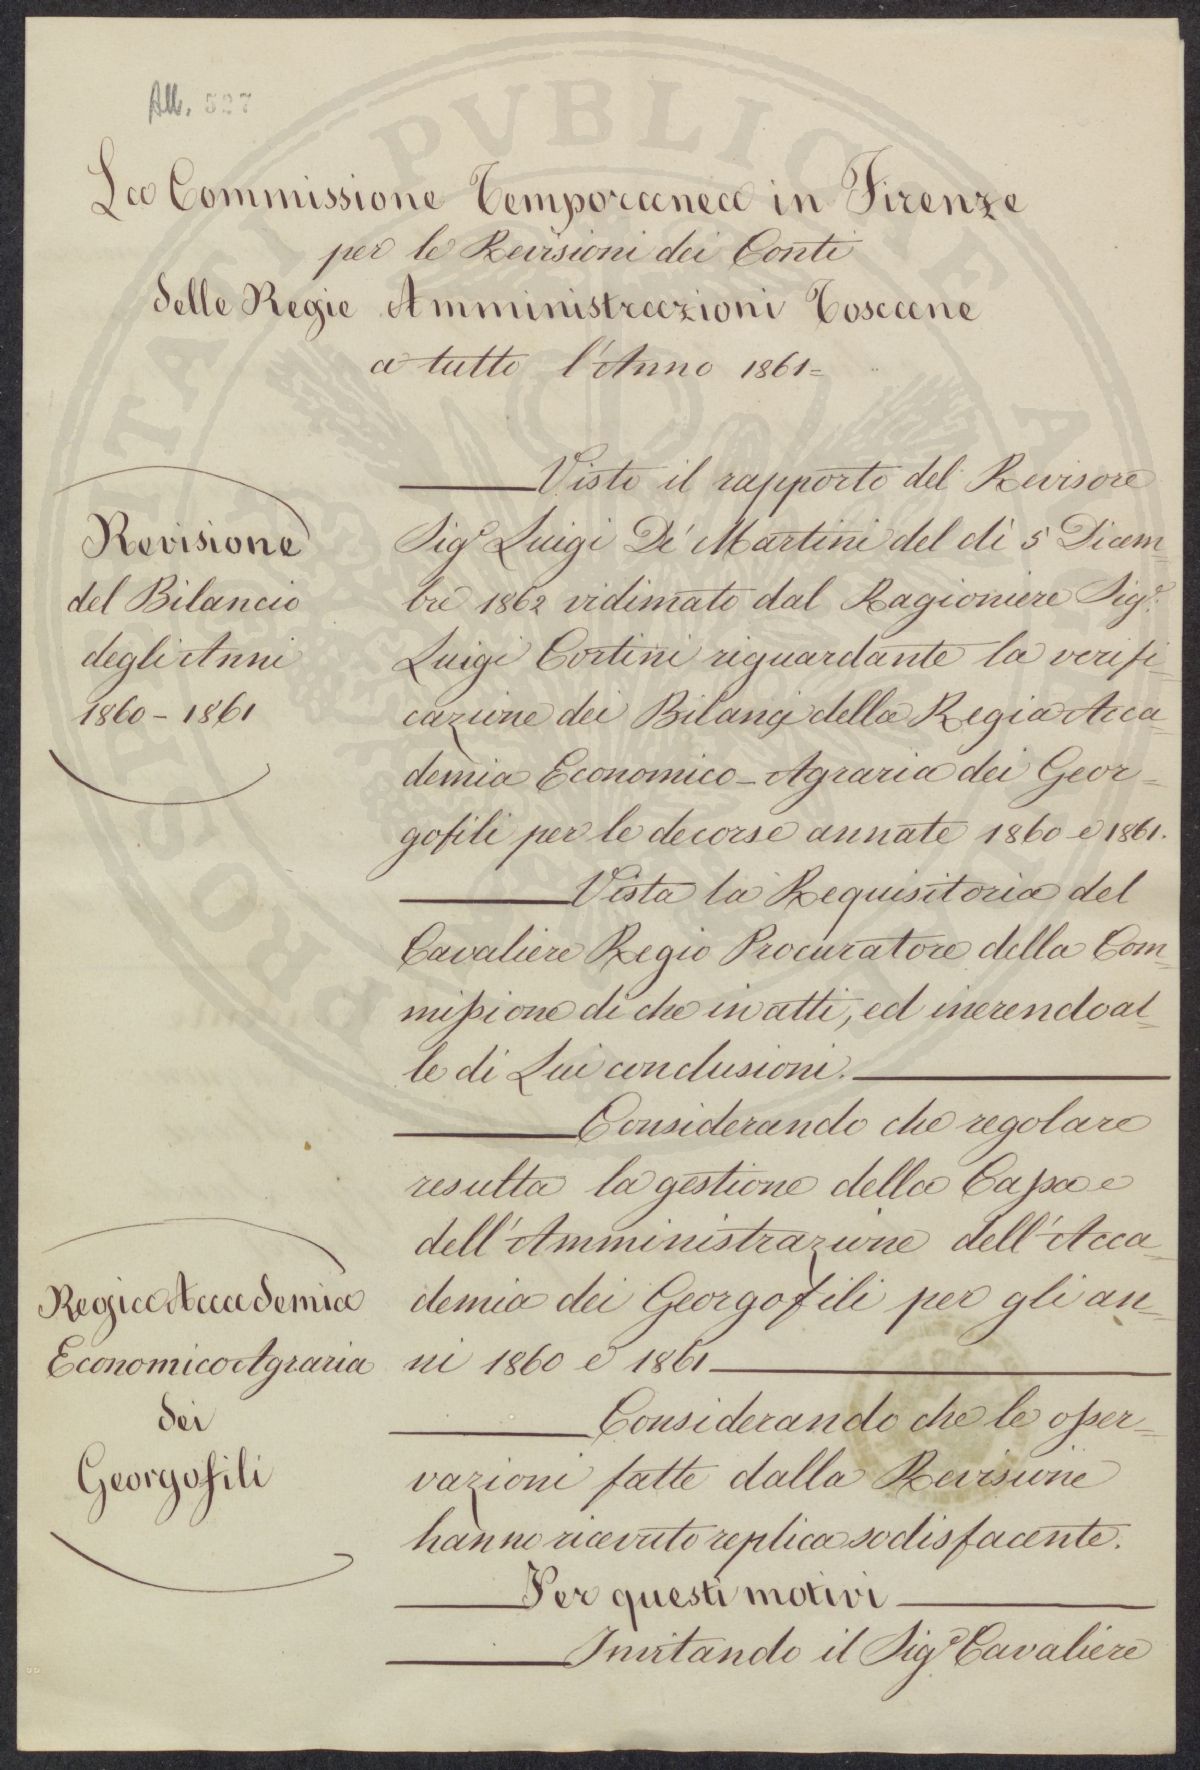 All. 527
La Commissione Temporanea in Firenze
per le Revisioni dei Conti
delle Regie Amministrazioni Toscane
a tutto l'Anno 1861=
Revisione
del Bilancio
degli Anni
1860 - 1861
Visto il rapporto del Revisore
Sigr. Luigi De' Martini del dì 5 Dicem=
bre 1862 vidimato dal Ragioniere Sigr.
Luigi Cortini riguardante la verifi=
cazione dei Bilanci della Regia Acca=
demia Economico-Agraria dei Geor=
gofili per le decorse annate 1860 e 1861.
Vista la Requisitoria del
Cavaliere Regio Procuratore della Com=
mißione di che in atti, ed inerendo al=
le di Lui conclusioni.
Considerando che regolare
resulta la gestione della Caßa e
dell'Amministrazione dell'Acca=
demia dei Georgofili per gli an=
ni 1860 e 1861
Regia Accademia
Economico Agraria
dei
Georgofili
Considerando che le oßer=
vazioni fatte dalla Revisione
hanno ricevuto replica sodisfacente.
Per questi motivi
Invitando il Sigr. Cavaliere
PROSPERITATI PVBLICAE AVGENDAE